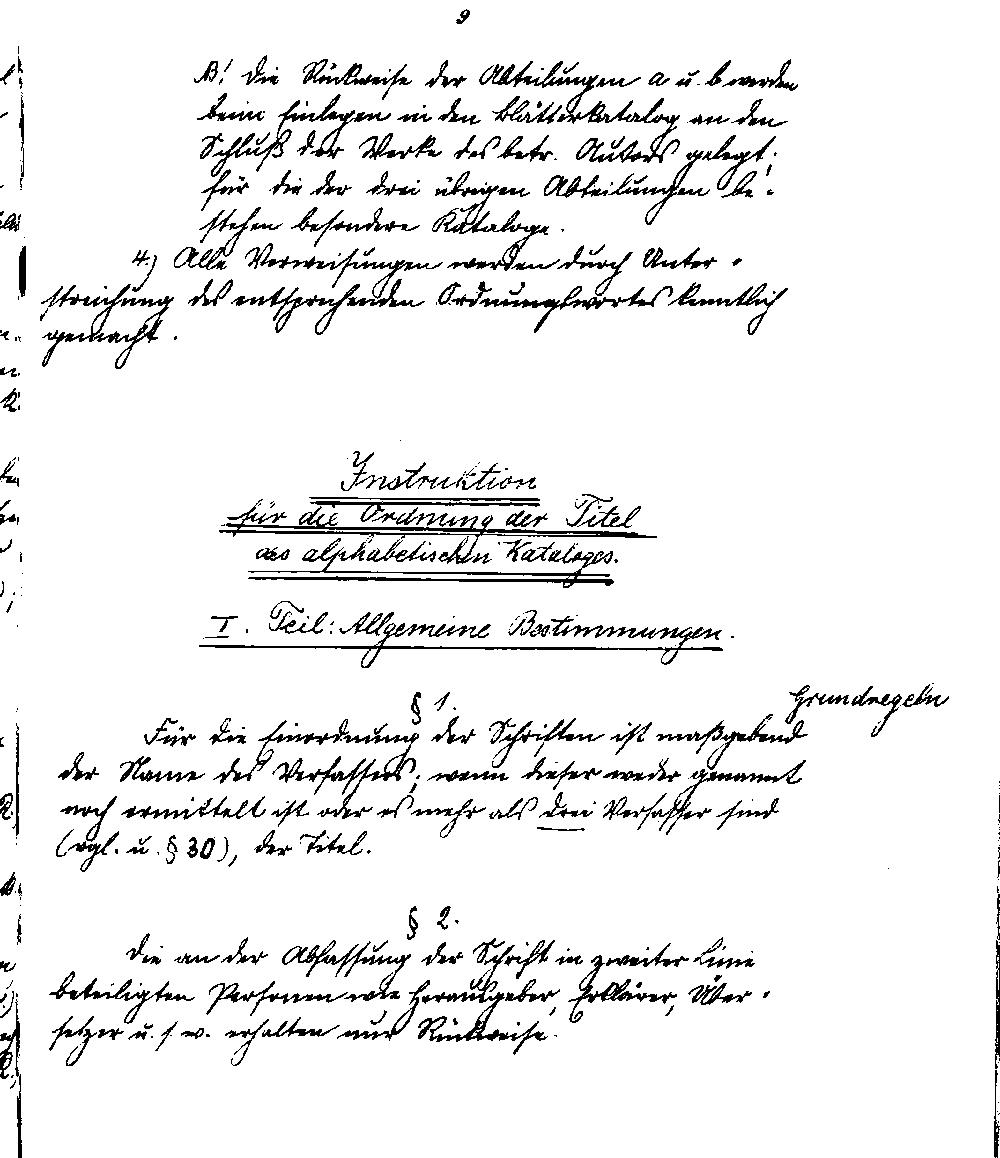 9
NB! Die Rückweise der Abteilungen a u. b werden
beim Einlegen in den Blätterkatalog an den
Schluß der Werke des betr. Autors gelegt;
für die der drei übrigen Abteilungen be-
stehen besondere Kataloge.
4.) Alle Verweisungen werden durch Unter-
streichung des entsprechenden Ordnungswortes kenntlich
gemacht.
Instruktion
für die Ordnung der Titel
des alphabetischen Kataloges.
I. Teil: Allgemeine Bestimmungen.
§ 1.
Grundregeln
Für die Einordnung der Schriften ist maßgebend
der Name des Verfassers; wenn dieser weder genannt
noch ermittelt ist oder es mehr als drei Verfasser sind
(vgl. u. § 30), der Titel.
§ 2.
Die an der Abfassung der Schrift in zweiter Linie
beteiligten Personen wie Herausgeber, Erklärer, Über-
setzer u. s. w. erhalten nur Rückweise.